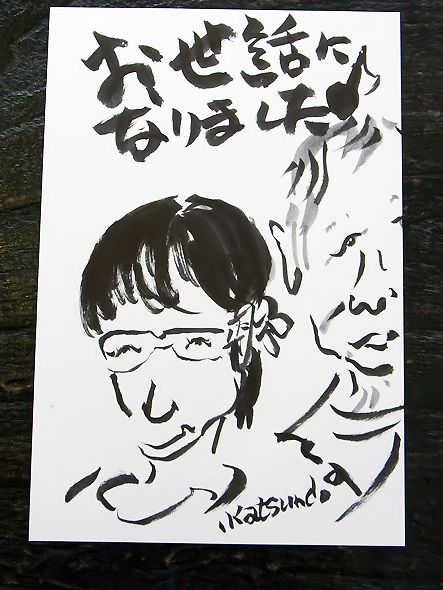 お世話に
なりました
Katsundo